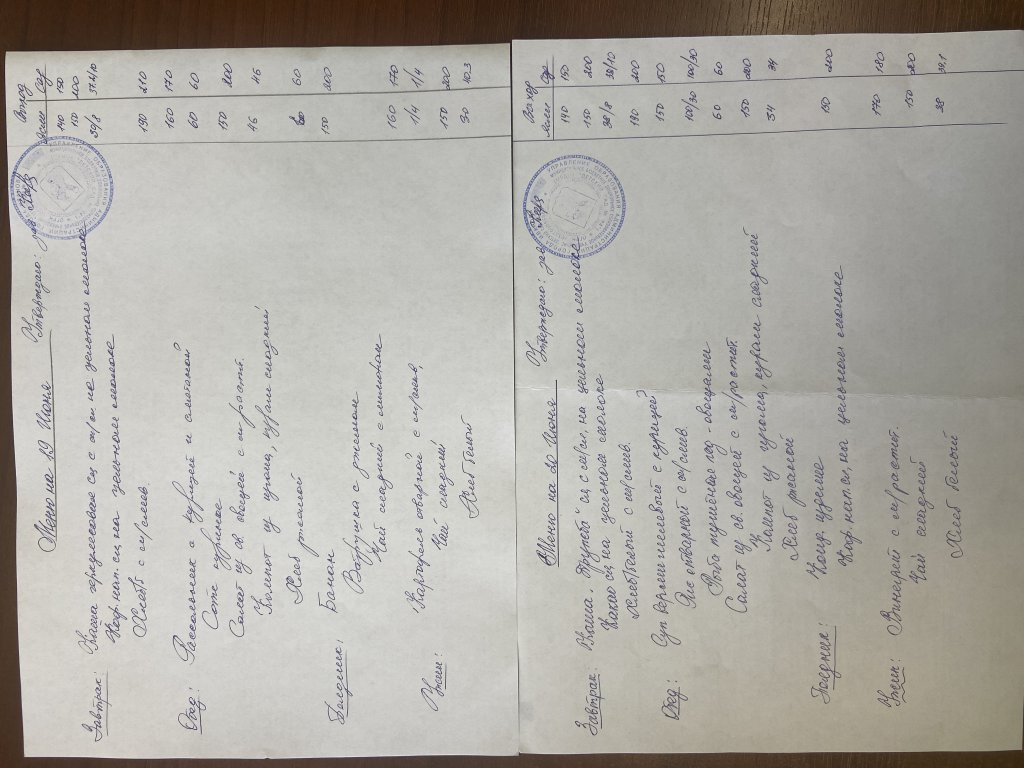 Меню на 29 Июня
Утверждаю: зав
Выход
Ясли Сад
Завтрак: Каша геркулесовая сл, с м/сл на цельном молоке 140 150
Коф. нап. сл, на цельном молоке 150 200
Хлеб б с м/слив 39/8
Обед: Рассольник с курицей и сметаной 190 210
Суфле куриное 160 170
Салат из св. овощей с м/раст. 60 60
Компот из изюма, кураги сладкий 150 200
Хлеб ржаной 46 46
Полдник: Банан 60
Ватрушка с джемом
Чай сладкий с лимоном 150 200
Ужин: Картофель отварной с м/слив, 160 170
1/4 1/4
Чай сладкий 150 200
Хлеб белый 30 40.3
Меню на 20 Июня
Утверждаю: зав
Выход
Ясли Сад
Завтрак: Каша "Дружба" сл, с м/сл, на цельном молоке 140 150
Какао сл, на цельном молоке 150 200
Хлеб белый с м/слив. 38/8 38/10
Обед: Суп вермишелевый с курицей 190 200
Рис отварной с м/слив 150 150
Рыба тушеная под овощами 100/30 100/30
Салат из св. овощей с м/раст. 60 60
Компот из изюма, кураги сладкий 150 200
Хлеб ржаной 34 34
Полдник: Конд. изделие
Коф. нап. сл, на цельном молоке 150 200
Ужин: Винегрет с м/раст. 170 180
Чай сладкий 150 200
Хлеб белый 28 38,1